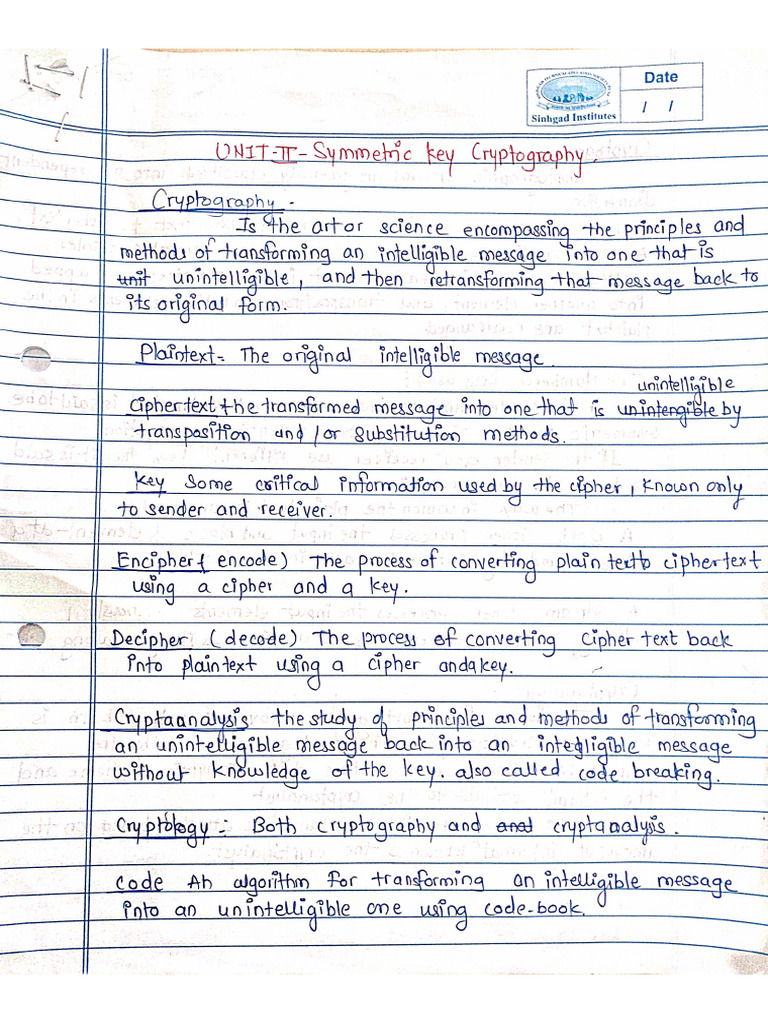 Date
Sinhgad Institutes
/ /
UNIT-II - Symmetric key Cryptography.
Cryptography -
Is the art or science encompassing the principles and
methods of transforming an intelligible message into one that is
unit unintelligible, and then retransforming that message back to
its original form.
Plaintext - The original intelligible message.
unintelligible
Ciphertext the transformed message into one that is unintengible by
transposition and /or substitution methods.
key Some critical information used by the cipher, known only
to sender and receiver.
Encipher ( encode) The process of converting plain text to ciphertext
using a cipher and a key.
Decipher ( decode) The process of converting Cipher text back
into plaintext using a cipher and a key.
Cryptaanalysis the study of principles and methods of transforming
an unintelligible message back into an intelligible message
without knowledge of the key. also called code breaking.
Cryptology :- Both cryptography and and cryptanalysis.
code An algorithm for transforming an intelligible message
into an unintelligible one using code-book.